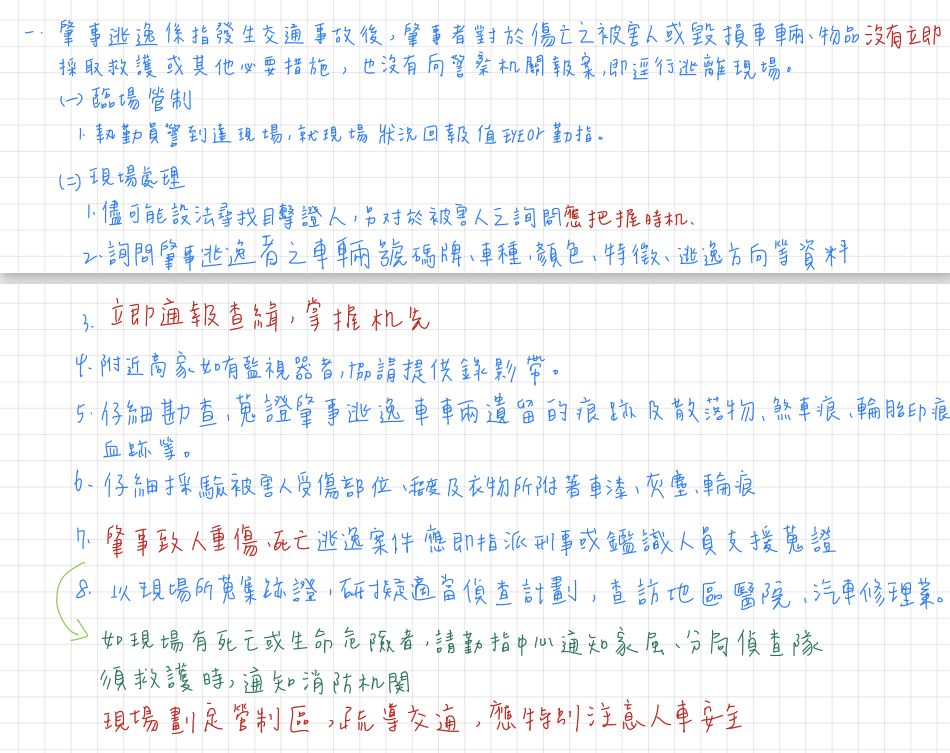 一. 肇事逃逸係指發生交通事故後，肇事者對於傷亡之被害人或毀損車輛、物品沒有立即
採取救護或其他必要措施，也沒有向警察机關報案，即逕行逃離現場。
(一) 臨場管制
1. 執勤員警到達現場，就現場狀況回報值班or勤指。
(二) 現場處理
1. 儘可能設法尋找目擊證人，另對於被害人之詢問應把握時机、
2. 詢問肇事逃逸者之車輛號碼牌、車種、顏色、特徵、逃逸方向等資料
3. 立即通報查緝，掌握机先
4. 附近商家如有監視器者，協請提供錄影帶。
5. 仔細勘查、蒐證肇事逃逸車車輛遺留的痕跡及散落物、煞車痕、輪胎印痕
血跡等。
6. 仔細採驗被害人受傷部位、程度及衣物所附著車漆、灰塵、輪痕
7. 肇事致人重傷、死亡逃逸案件應即指派刑事或鑑識人員支援蒐證
8. 以現場所蒐集跡證，研擬適當偵查計劃，查訪地區醫院、汽車修理業。
如現場有死亡或生命危險者，請勤指中心通知家屬、分局偵查隊
須救護時，通知消防机關
現場劃定管制區，疏導交通，應特別注意人車安全